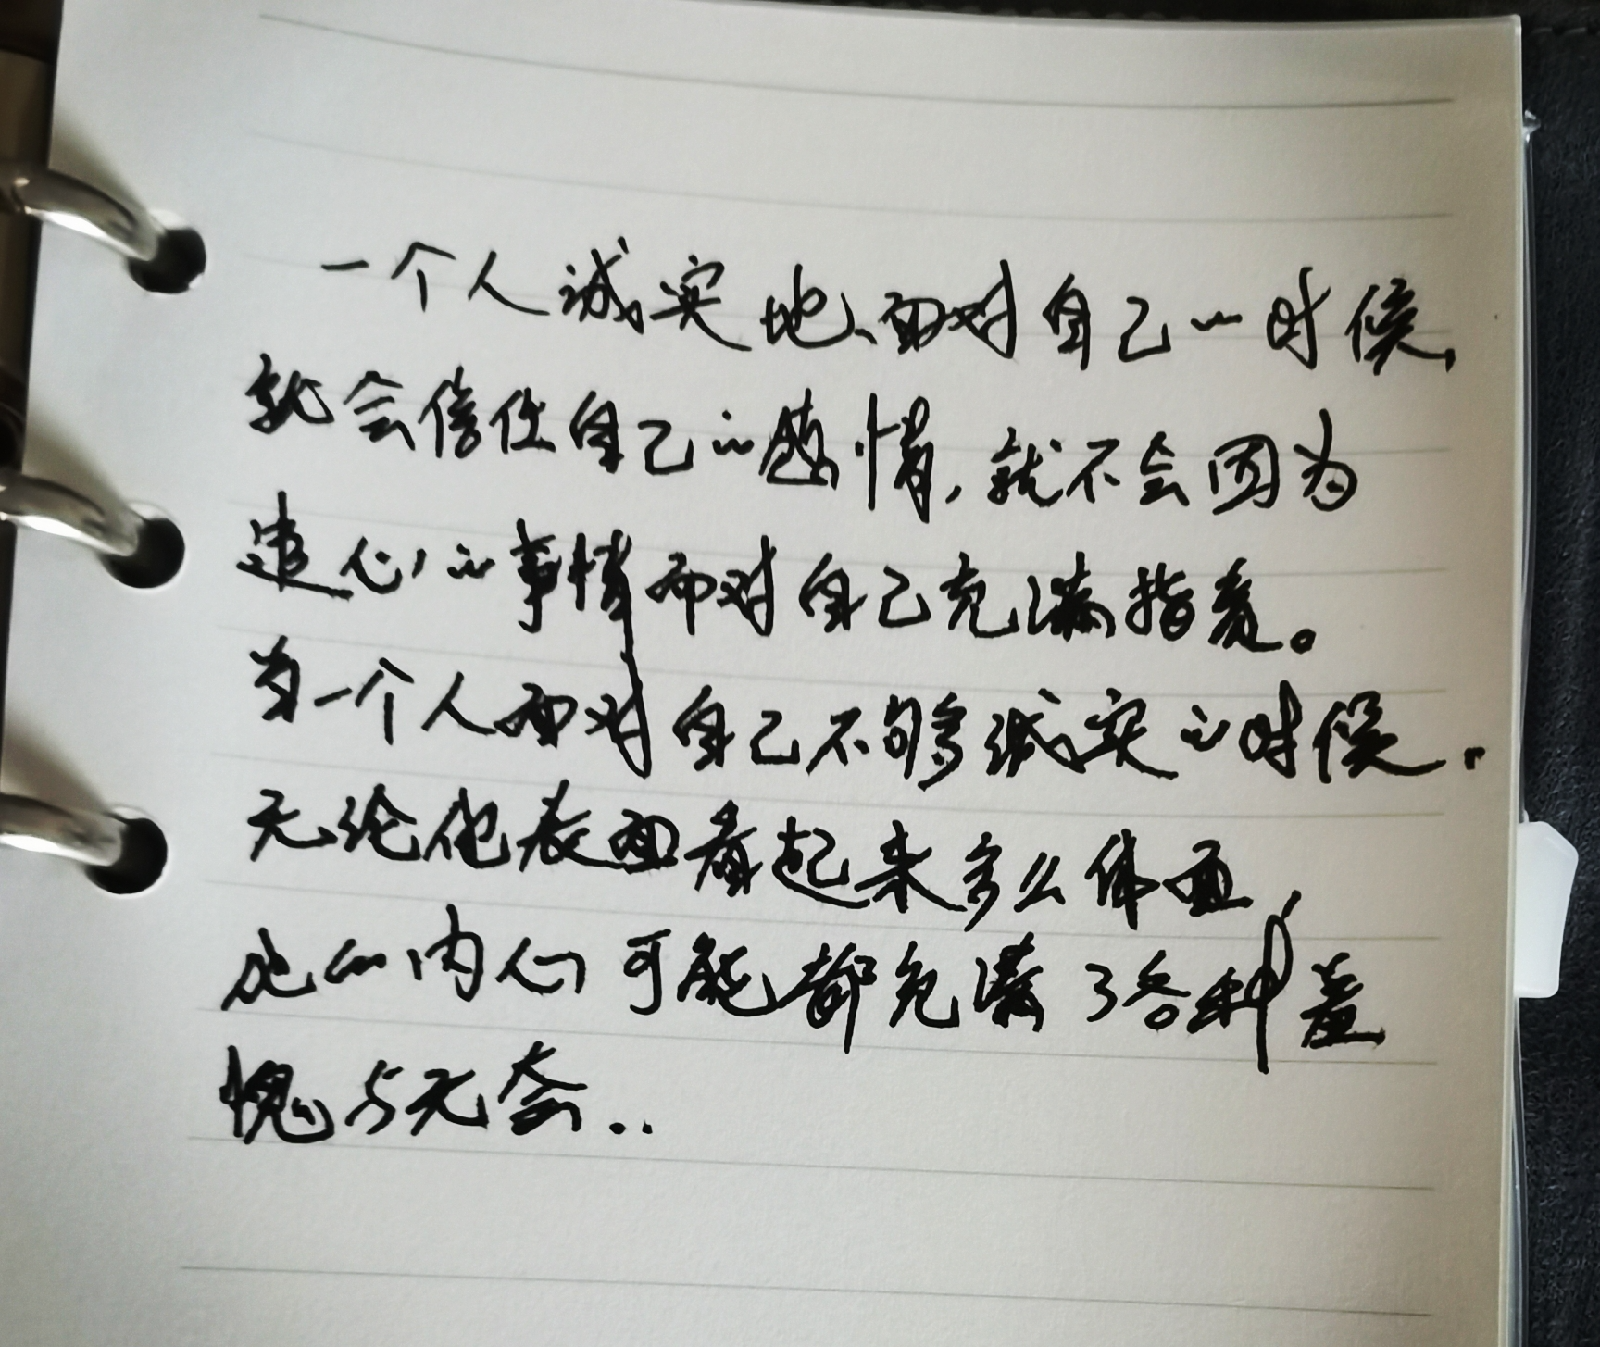 一个人诚实地面对自己的时候,
就会信任自己的感情,就不会因为
违心的事情而对自己充满指责。
当一个人面对自己不够诚实的时候,
无论他表面看起来多么体面,
他的内心可能都充满了各种羞
愧与无奈..